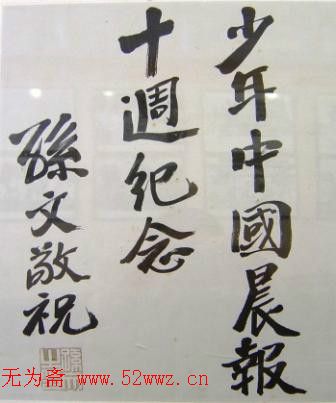 少年中國晨報
十週紀念
孫文敬祝
无为斋 www.52wwz.cn